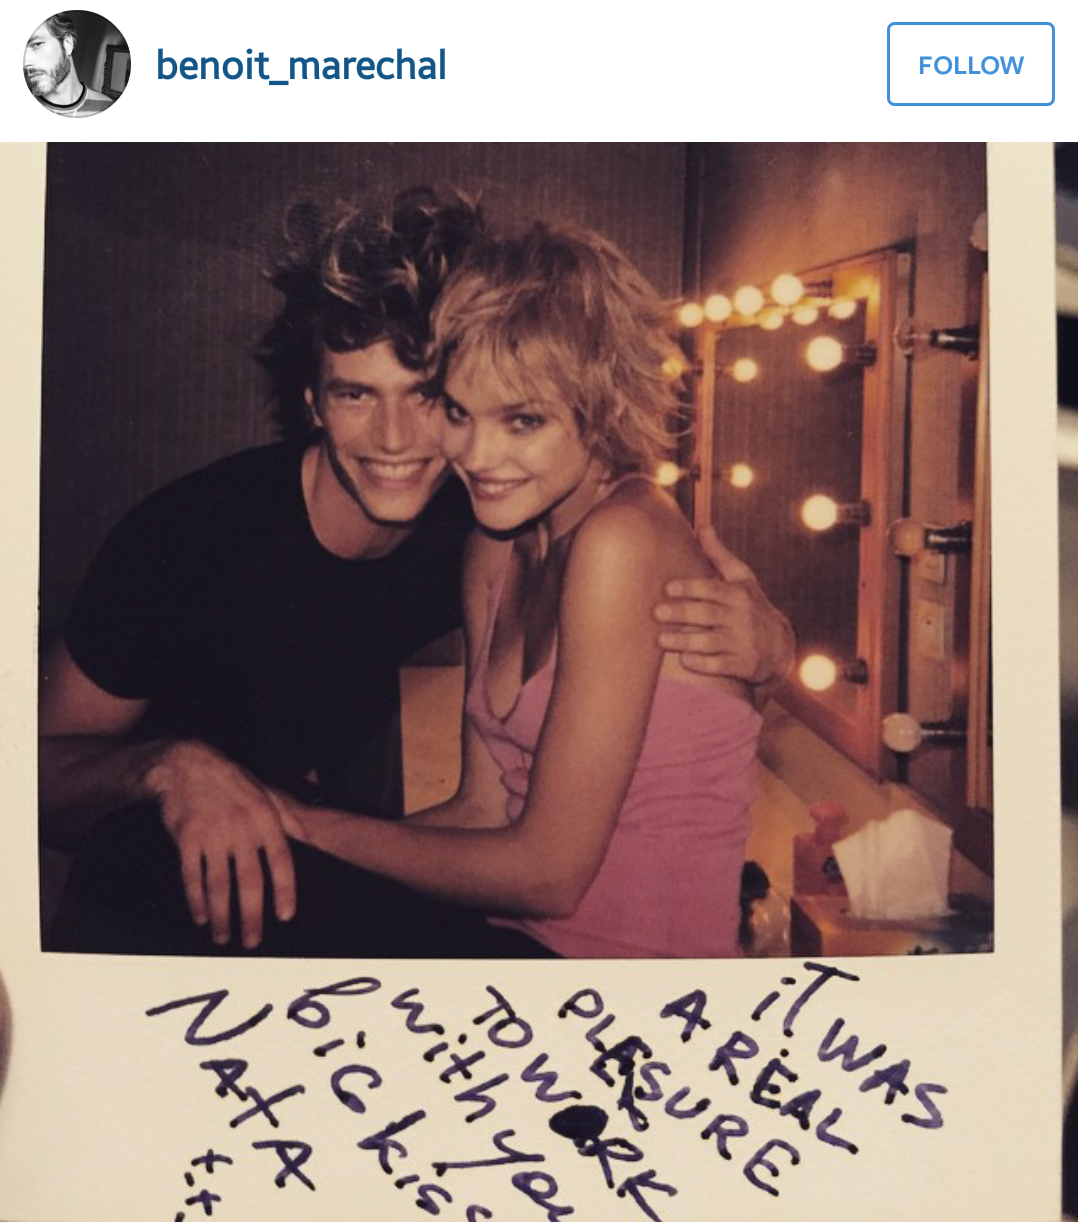 benoit_marechal
FOLLOW
iT WAS
A REAL
PLEASURE
TO WORK
with you
biG kiss
NATA